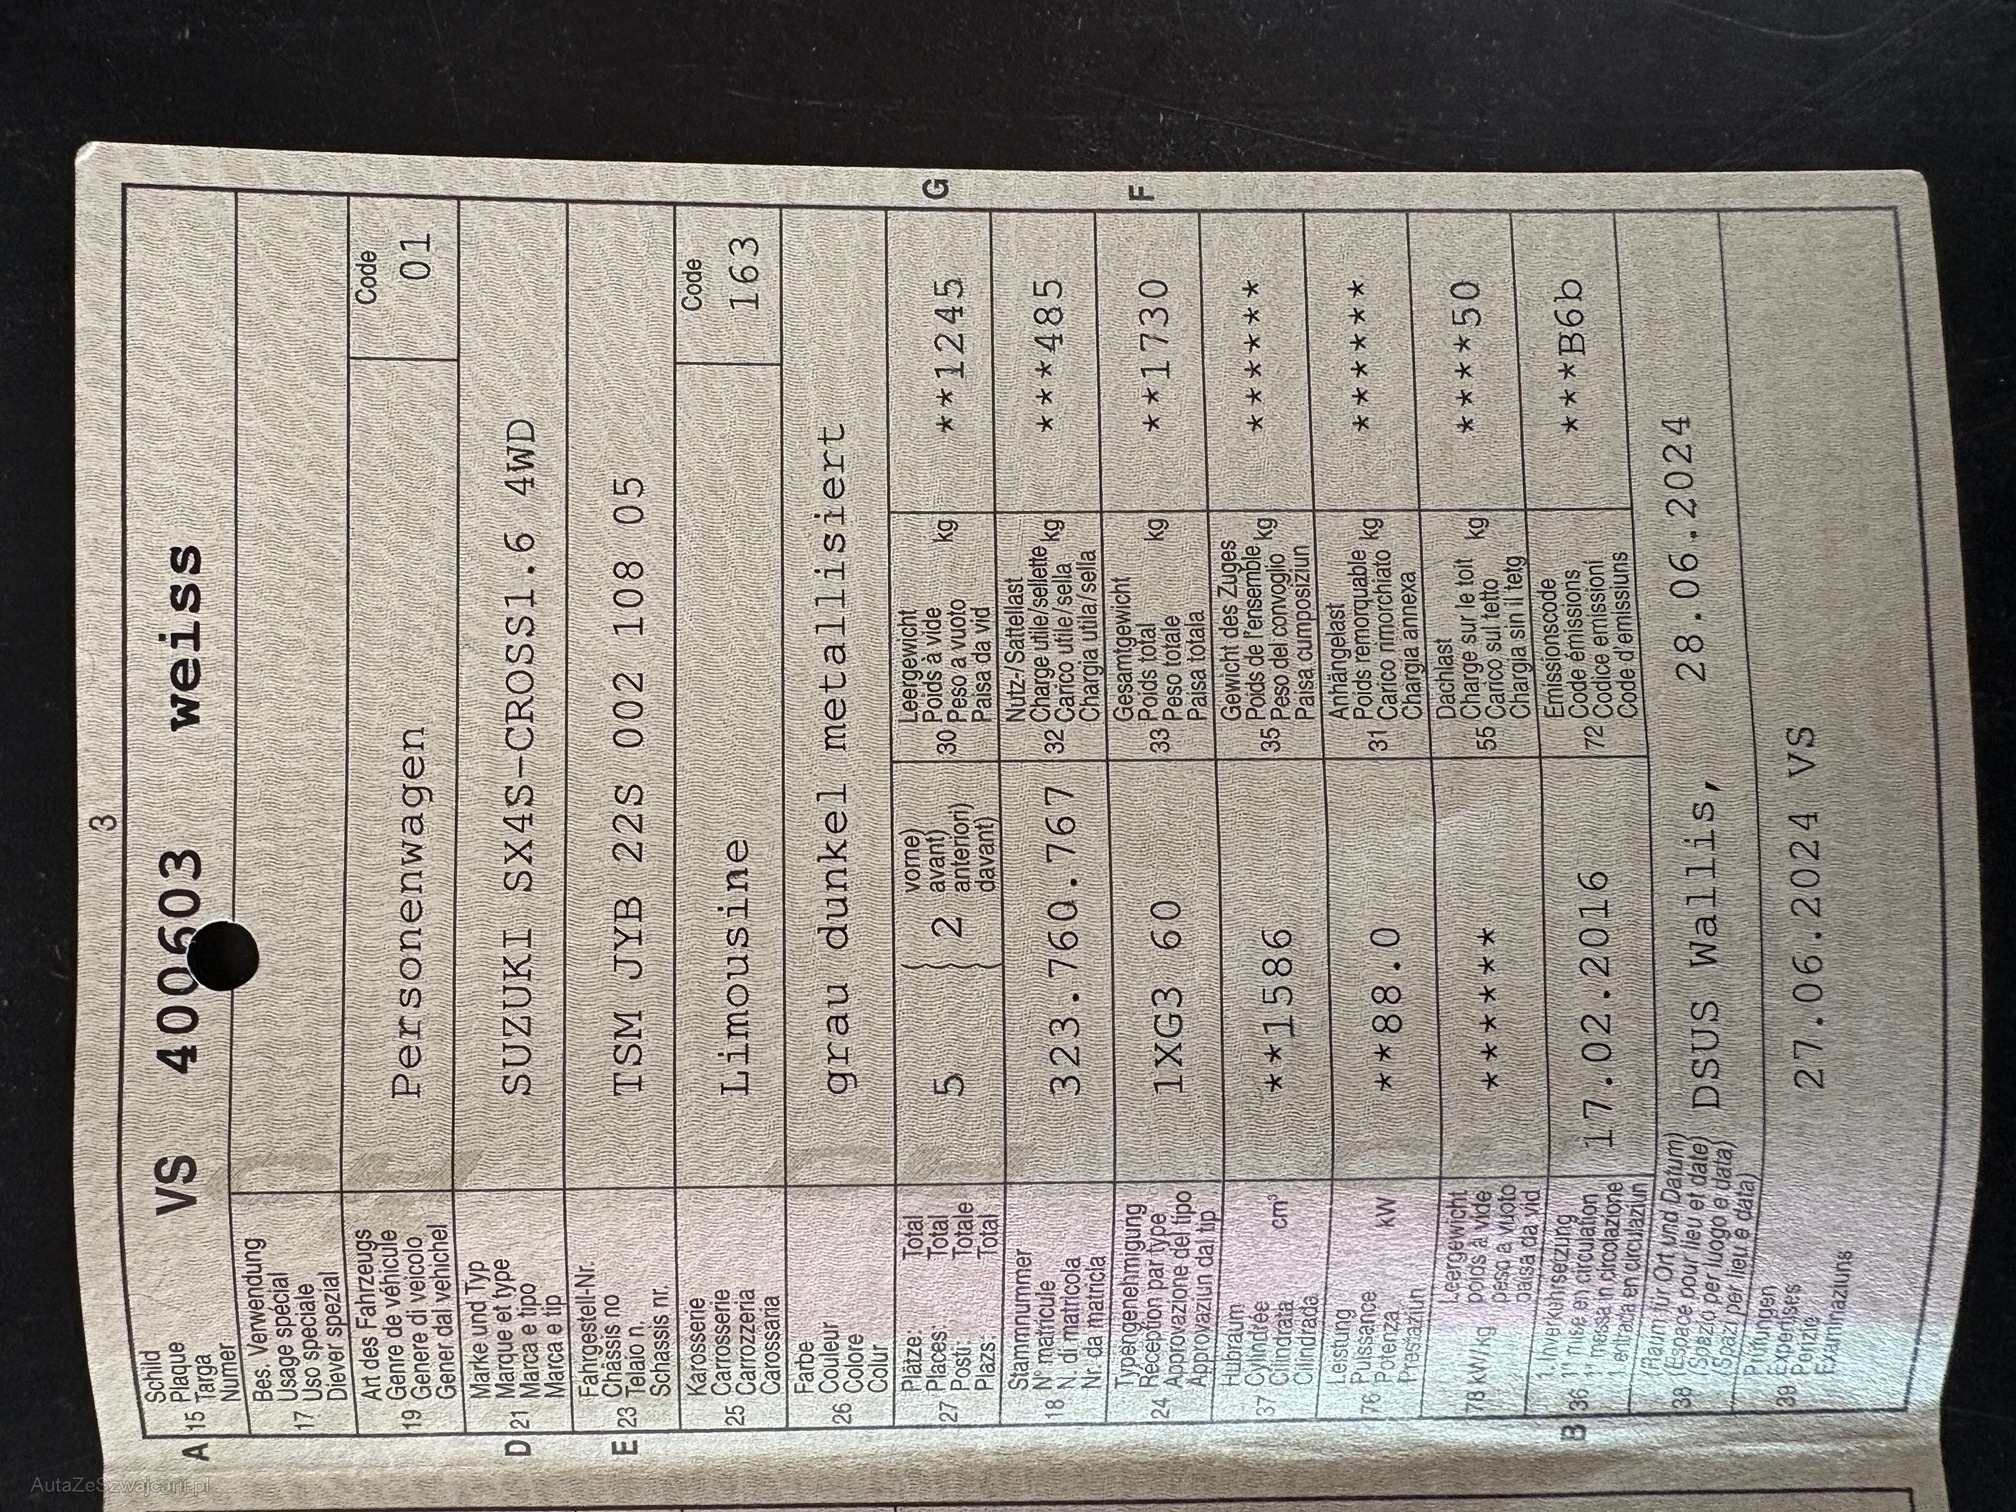 3
A 15 Schild
Plaque
Targa
Numer
VS 400603 weiss
17 Bes. Verwendung
Usage spécial
Uso speciale
Diever spezial
19 Art des Fahrzeugs
Genre de véhicule
Genere di veicolo
Gener dal vehichel
Personenwagen
Code
01
D 21 Marke und Typ
Marque et type
Marca e tipo
Marca e tip
SUZUKI SX4S-CROSS1.6 4WD
E 23 Fahrgestell-Nr.
Châssis no
Telaio n.
Schassis nr.
TSM JYB 22S 002 108 05
25 Karosserie
Carrosserie
Carrozzeria
Carrossaria
Limousine
Code
163
26 Farbe
Couleur
Colore
Colur
grau dunkel metallisiert
27 Plätze: Total
Places: Total
Posti: Totale
Plazs: Total
5
2
vorne)
avant)
anteriori)
davant)
30 Leergewicht
Poids à vide
Peso a vuoto
Paisa da vid
kg
**1245
G
18 Stammnummer
N° matricule
N. di matricola
Nr. da matricla
323.760.767
32 Nutz-/Sattellast
Charge utile/sellette
Carico utile/sella
Chargia utila/sella
kg
***485
24 Typengenehmigung
Réception par type
Approvazione del tipo
Approvaziun dal tip
1XG3 60
33 Gesamtgewicht
Poids total
Peso totale
Paisa totala
kg
**1730
F
37 Hubraum
Cylindrée
Cilindrata
Cilindrada
cm³
**1586
35 Gewicht des Zuges
Poids de l'ensemble
Peso del convoglio
Paisa cumposiziun
kg
******
76 Leistung
Puissance
Potenza
Prestaziun
kW
**88.0
31 Anhängelast
Poids remorquable
Carico rimorchiato
Chargia annexa
kg
******
78 kW/kg
Leergewicht
poids à vide
peso a vuoto
paisa da vid
******
55 Dachlast
Charge sur le toit
Carico sul tetto
Chargia sin il tetg
kg
****50
B 36 1. Inverkehrsetzung
1re mise en circulation
1a messa in circolazione
1. entrada en circulaziun
17.02.2016
72 Emissionscode
Code émissions
Codice emissioni
Code d'emissiuns
***B6b
38 (Raum für Ort und Datum)
(Espace pour lieu et date)
(Spazio per luogo e data)
(Spazi per lieu e data)
DSUS Wallis, 28.06.2024
39 Prüfungen
Expertises
Perizie
Examinaziuns
27.06.2024 VS
AutaZeSzwajcarii.pl